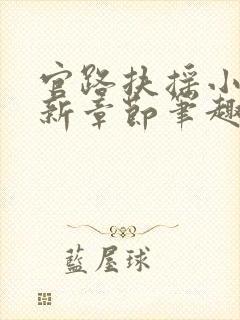 官路扶摇小
新章节笔趣
藍屋球